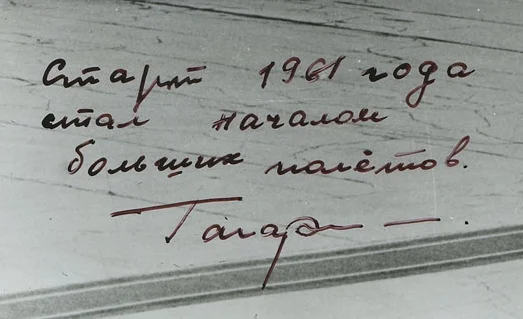 Старт 1961 года
стал началом
больших полётов.
Гагарин